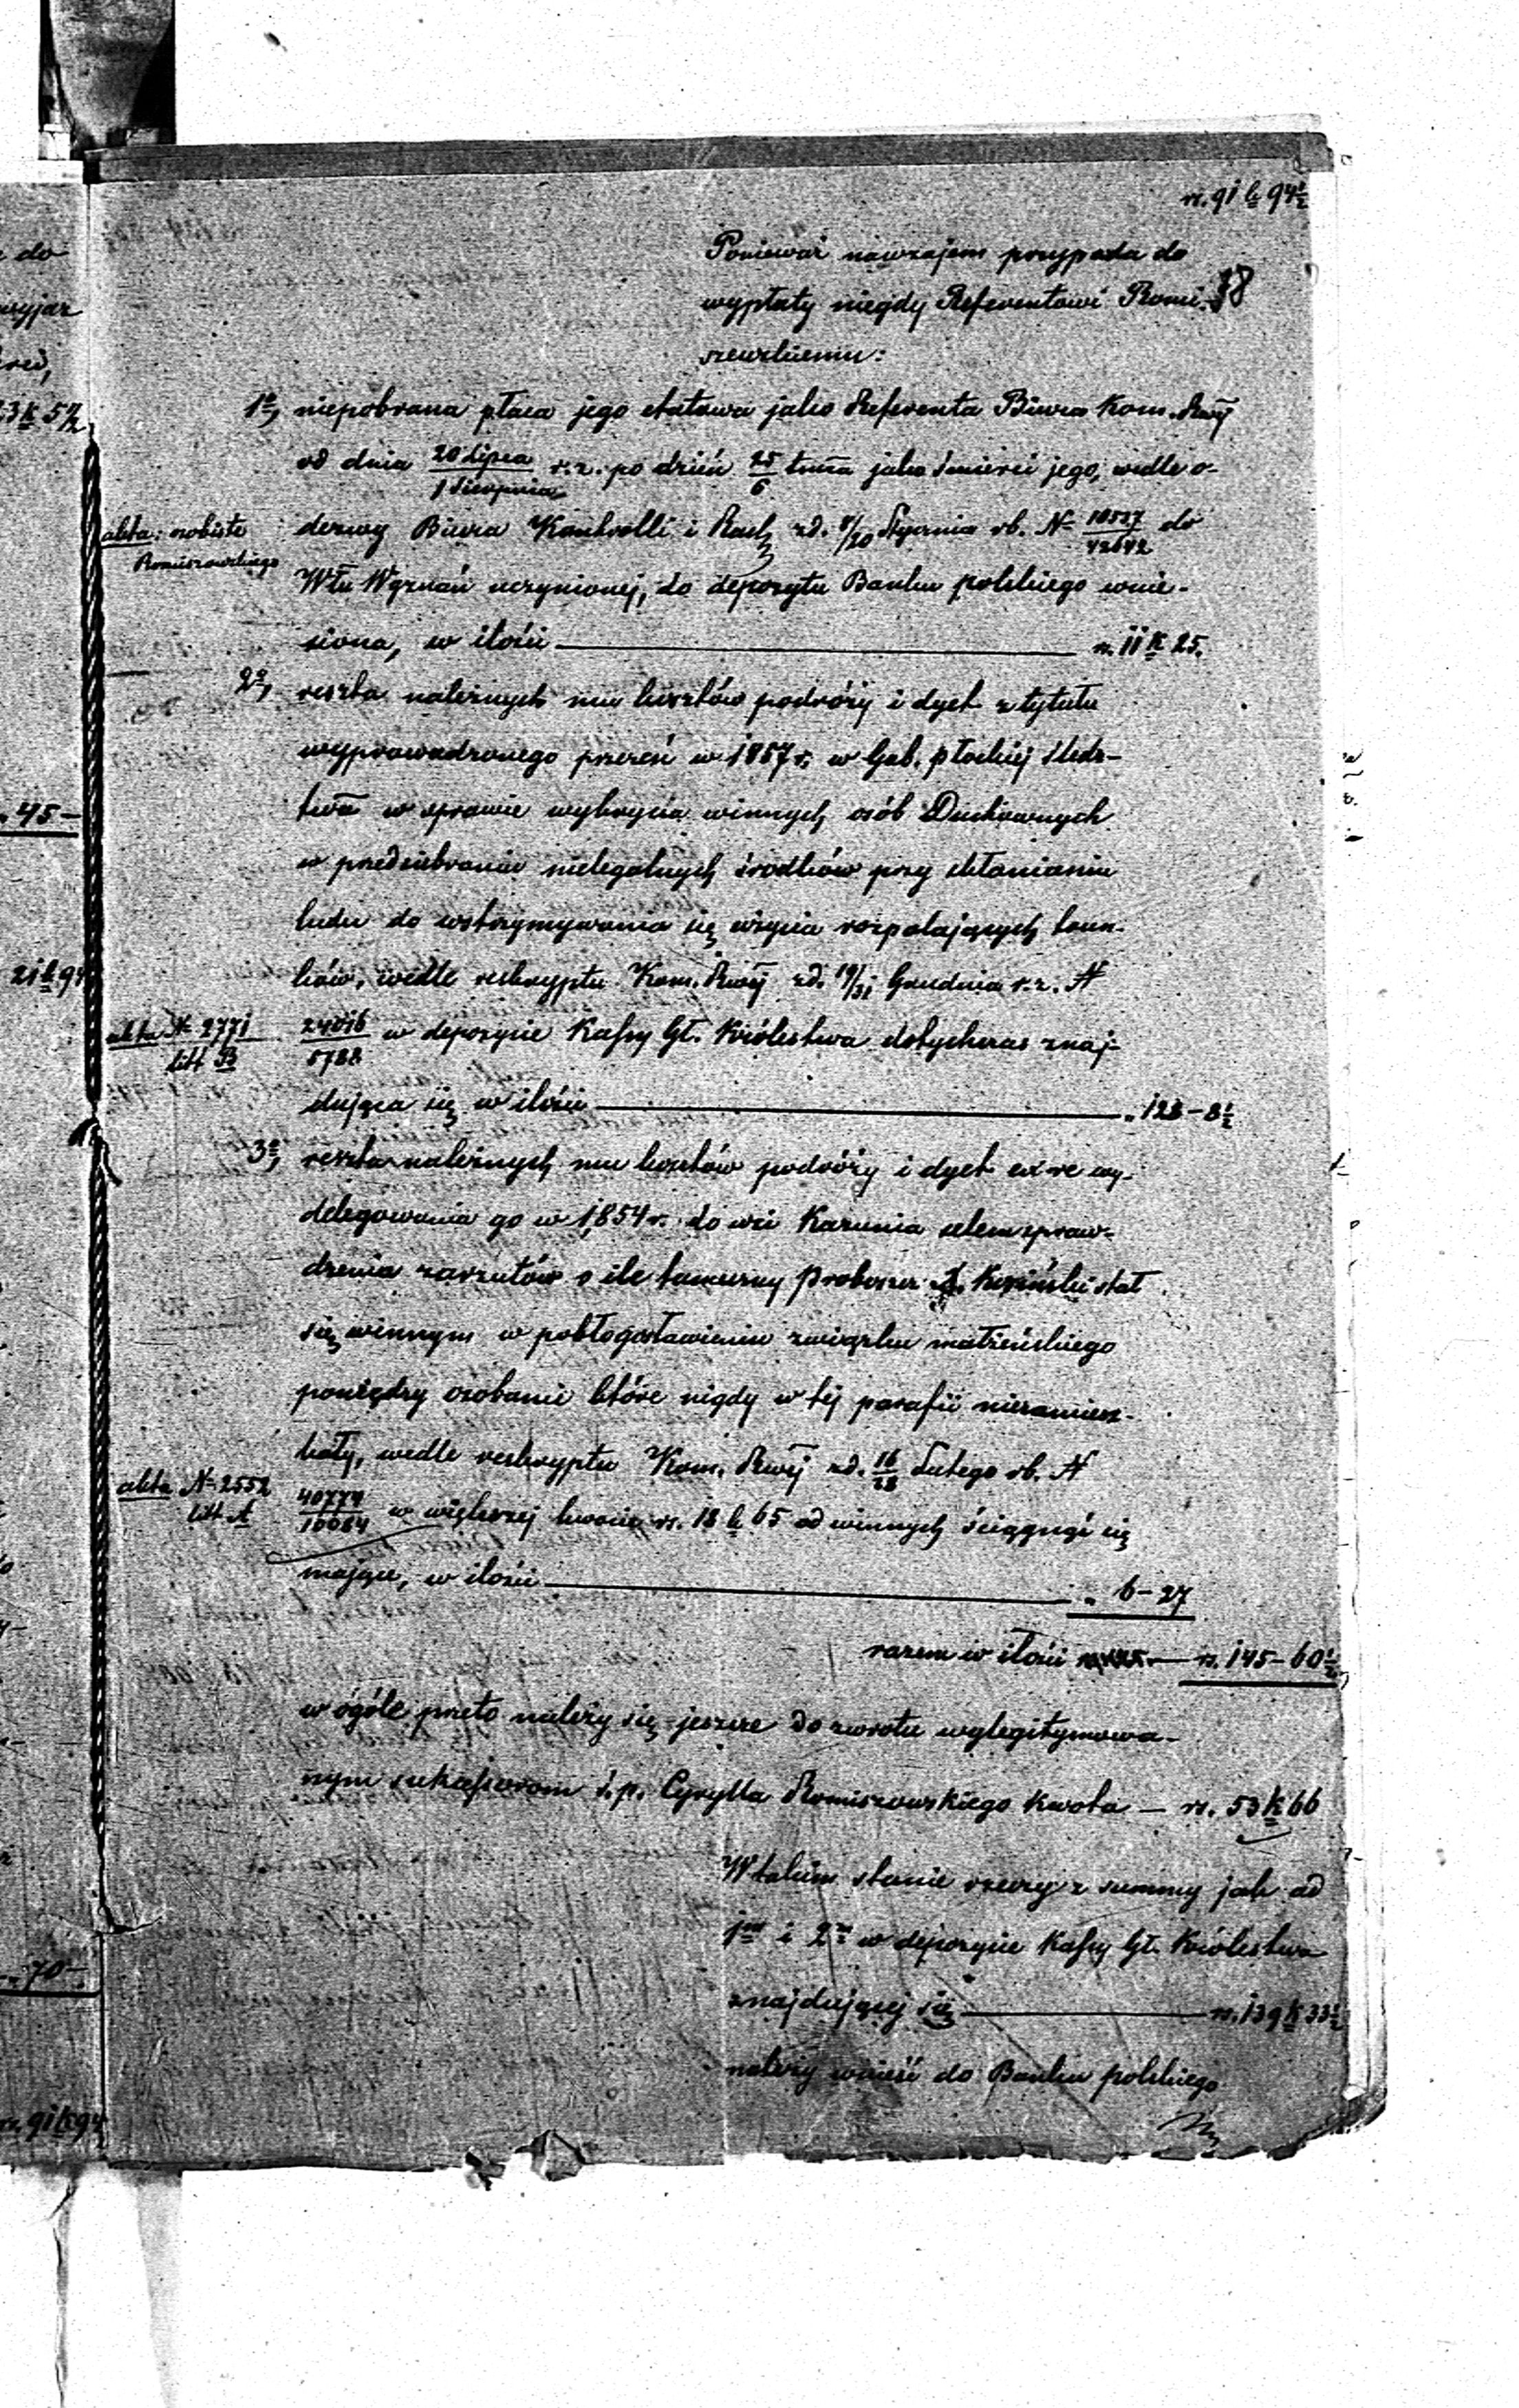 rs. 91 k 94½
18
Ponieważ nawzajem przypada do
wypłaty niegdy Referentowi Romi-
szewskiemu:
1º, niepobrana płaca jego etatowa jako Referenta Biura Kom. Rwéj
od dnia 20 Lipca/1 Sierpnia r.z. po dzień 25/6 jako śmierci jego, wedle o-
akta: osobiste
Romiszowskiego
dezwy Biura Kontrolli i Rach zd. 8/20 Stycznia rb. N 10527/42642 do
Włu Wyznań uczynionej, do depozytu Banku polskiego wnie-
siona, w ilości — rs. 11 k 25.
2º, reszta należnych mu kosztów podróży i dyet z tytułu
wyprowadzonego przezeń w 1857 r. w Gub. płockiéj śledz-
twa w sprawie wykrycia winnych osób Duchownych
w przedsiębraniu nielegalnych środków przy skłanianiu
ludu do wstrzymywania się użycia rozpalających trun-
ków, wedle reskryptu Kom. Rwéj zd. 19/31 Grudnia r.z. N
akta N 2771
litt B
24016/5788 w depozycie Kassy Gł. Królestwa dotychczas znaj-
dująca się w ilości — „ 128 – 8½
3º, reszta należnych mu kosztów podróży i dyet ex re wy-
delegowania go w 1854 r. do wsi Karunia celem spraw-
dzenia zarzutów o ile tameczny Proboszcz X. Kosiński stał
się winnym w pobłogosławieniu związku małżeńskiego
pomiędzy osobami które nigdy w téj parafii niezamiesz-
kały, wedle reskryptu Kom. Rwéj zd. 16/28 Lutego rb. N
akta N 2552
litt A
40774/10084 w większej kwocie rs. 18 k 65 od winnych ściągnąć się
mające, w ilości — „ 6 – 27
razem w ilości — rs. 145 – 60½
w ogóle przeto należy się jeszcze do zwrotu wylegitymowa-
nym sukcessorom ś.p. Cyrylla Romiszowskiego kwota — rs. 53 k 66
W takim stanie rzeczy z summy jak ad
1m i 2m w depozycie Kassy Gł. Królestwa
znajdującéj się — rs. 139 k 33½
należy wnieść do Banku polskiego